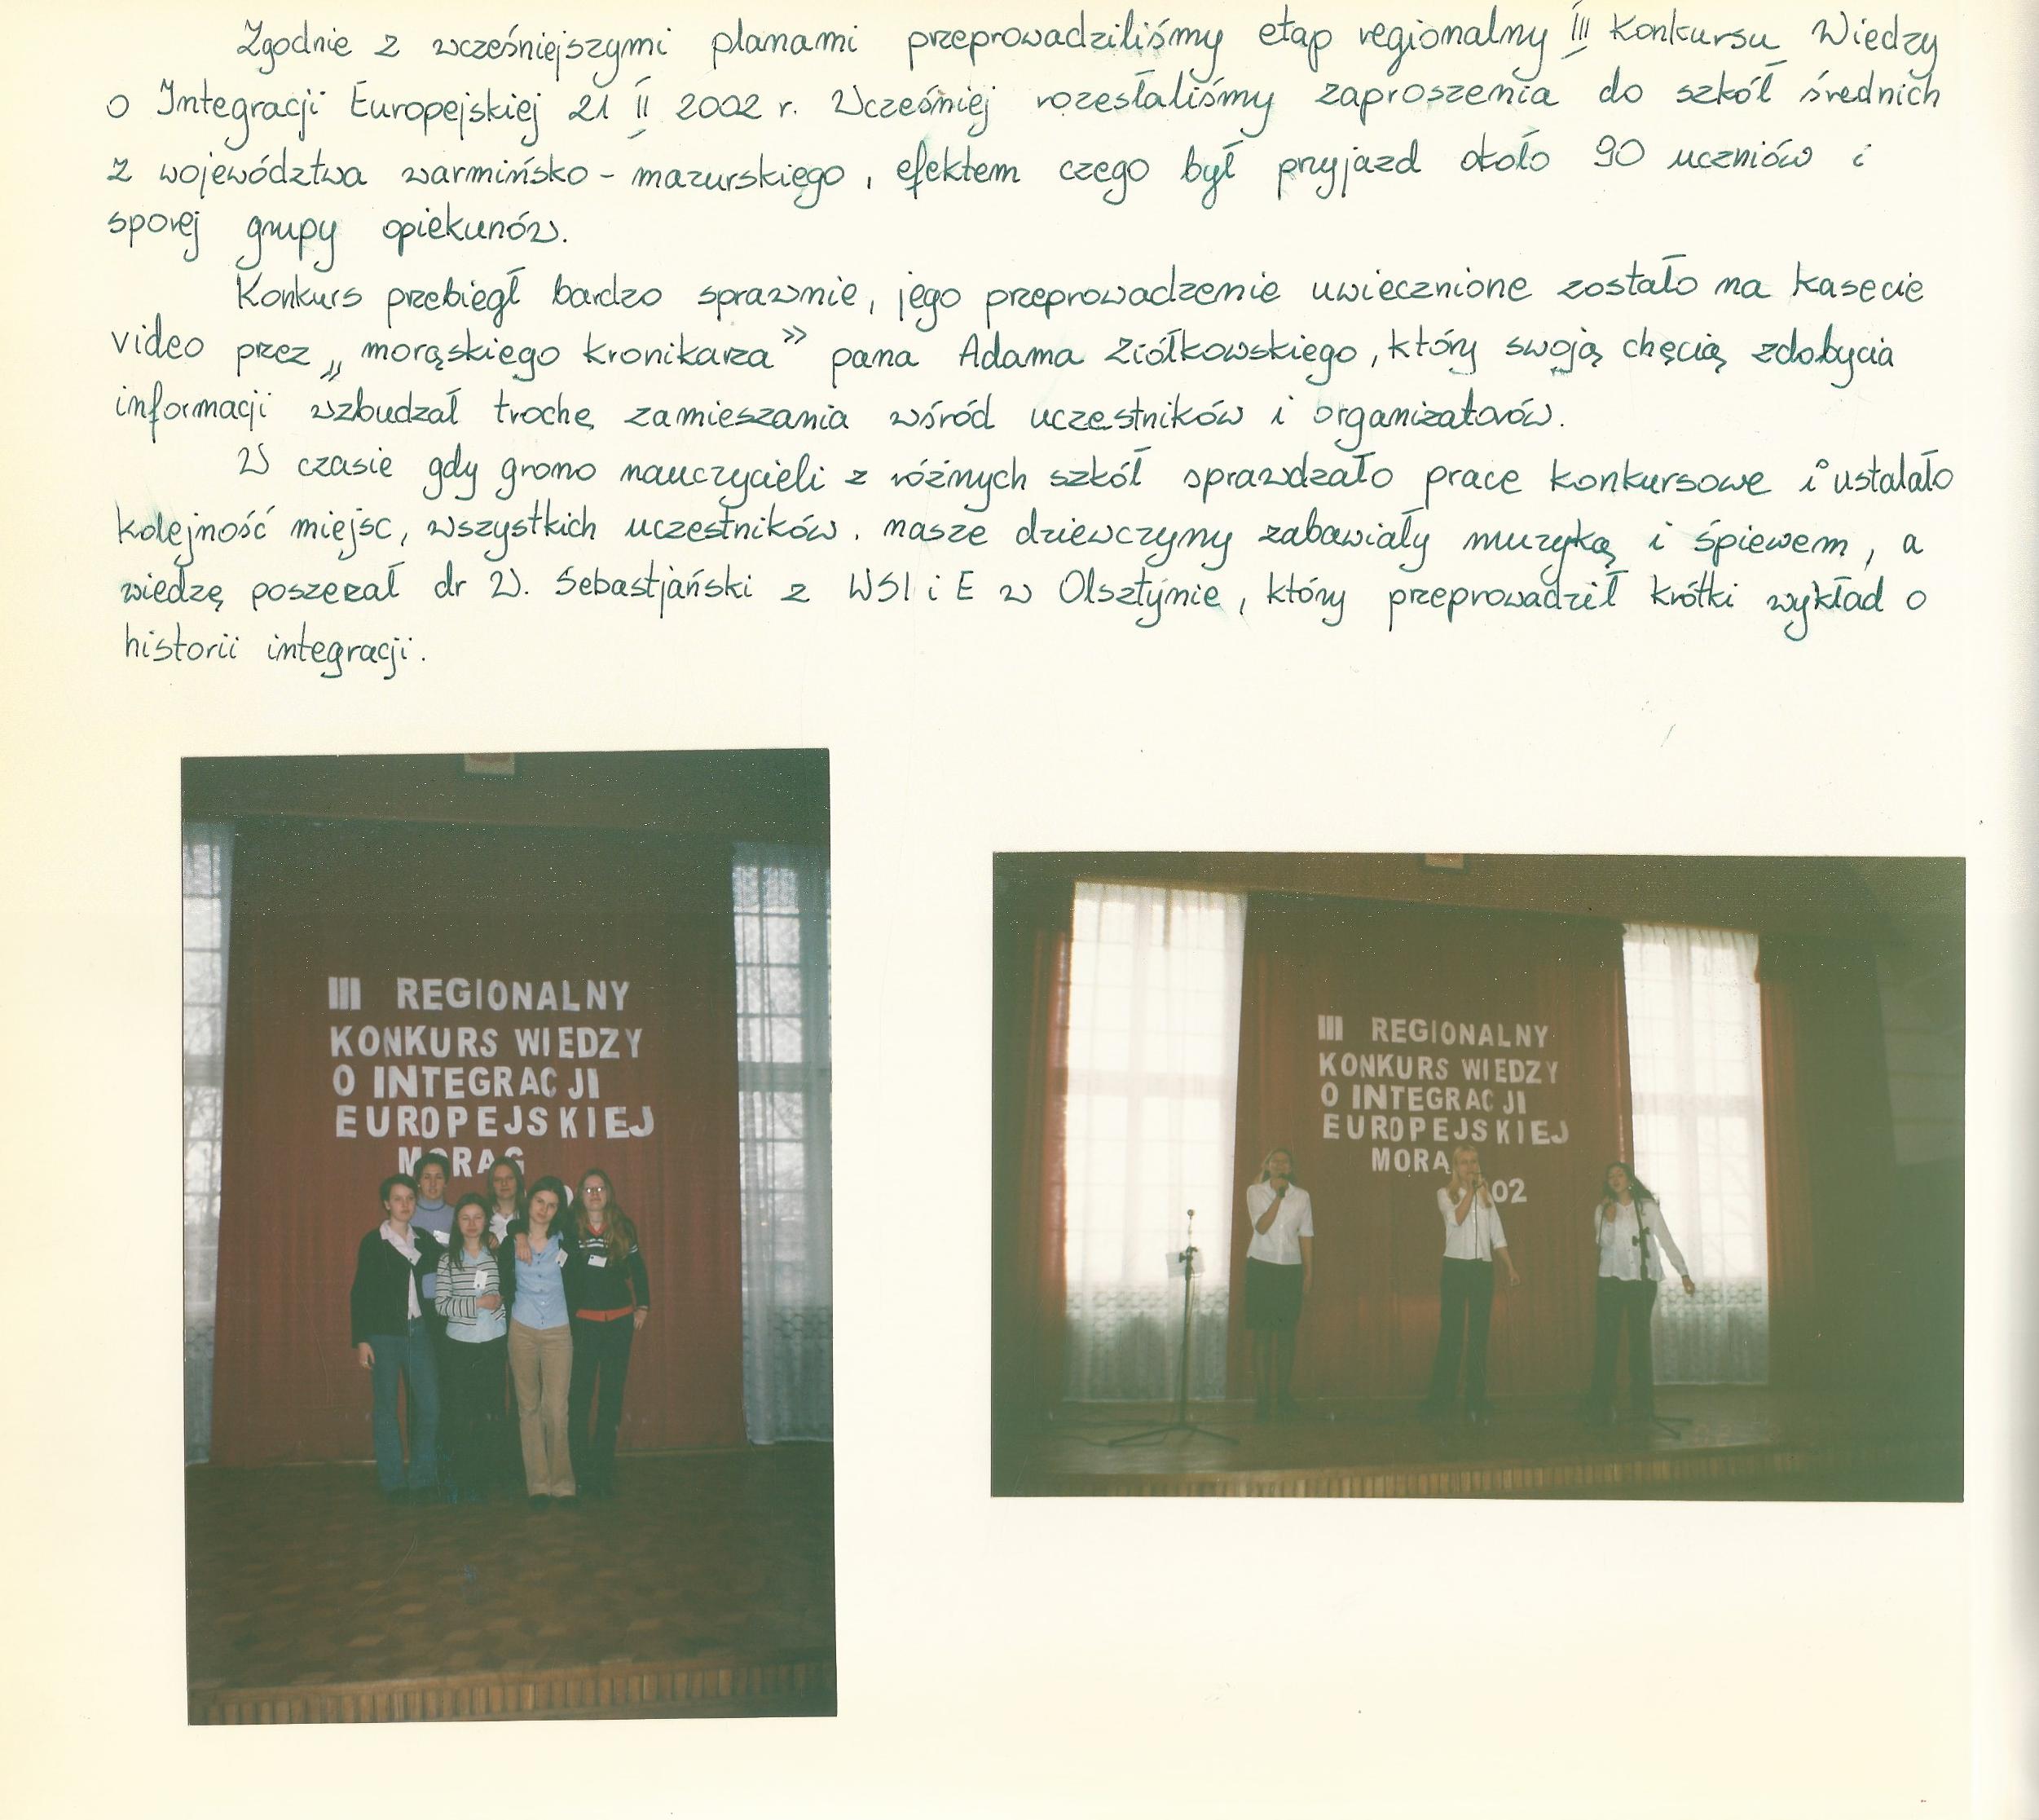 Zgodnie z wcześniejszymi planami przeprowadziliśmy etap regionalny III Konkursu Wiedzy
o Integracji Europejskiej 21 II 2002 r. Wcześniej rozesłaliśmy zaproszenia do szkół średnich
z województwa warmińsko - mazurskiego, efektem czego był przyjazd około 90 uczniów i
sporej grupy opiekunów.
Konkurs przebiegł bardzo sprawnie, jego przeprowadzenie uwiecznione zostało na kasecie
video przez „morąskiego kronikarza” pana Adama Ziółkowskiego, który swoją chęcią zdobycia
informacji wzbudzał trochę zamieszania wśród uczestników i organizatorów.
W czasie gdy grono nauczycieli z różnych szkół sprawdzało prace konkursowe i ustalało
kolejność miejsc, wszystkich uczestników. nasze dziewczyny zabawiały muzyką i śpiewem, a
wiedzę poszerzał dr W. Sebastjański z WSI i E w Olsztynie, który przeprowadził krótki wykład o
historii integracji.
III REGIONALNY
KONKURS WIEDZY
O INTEGRACJI
EUROPEJSKIEJ
MORĄG
III REGIONALNY
KONKURS WIEDZY
O INTEGRACJI
EUROPEJSKIEJ
MORĄ
02